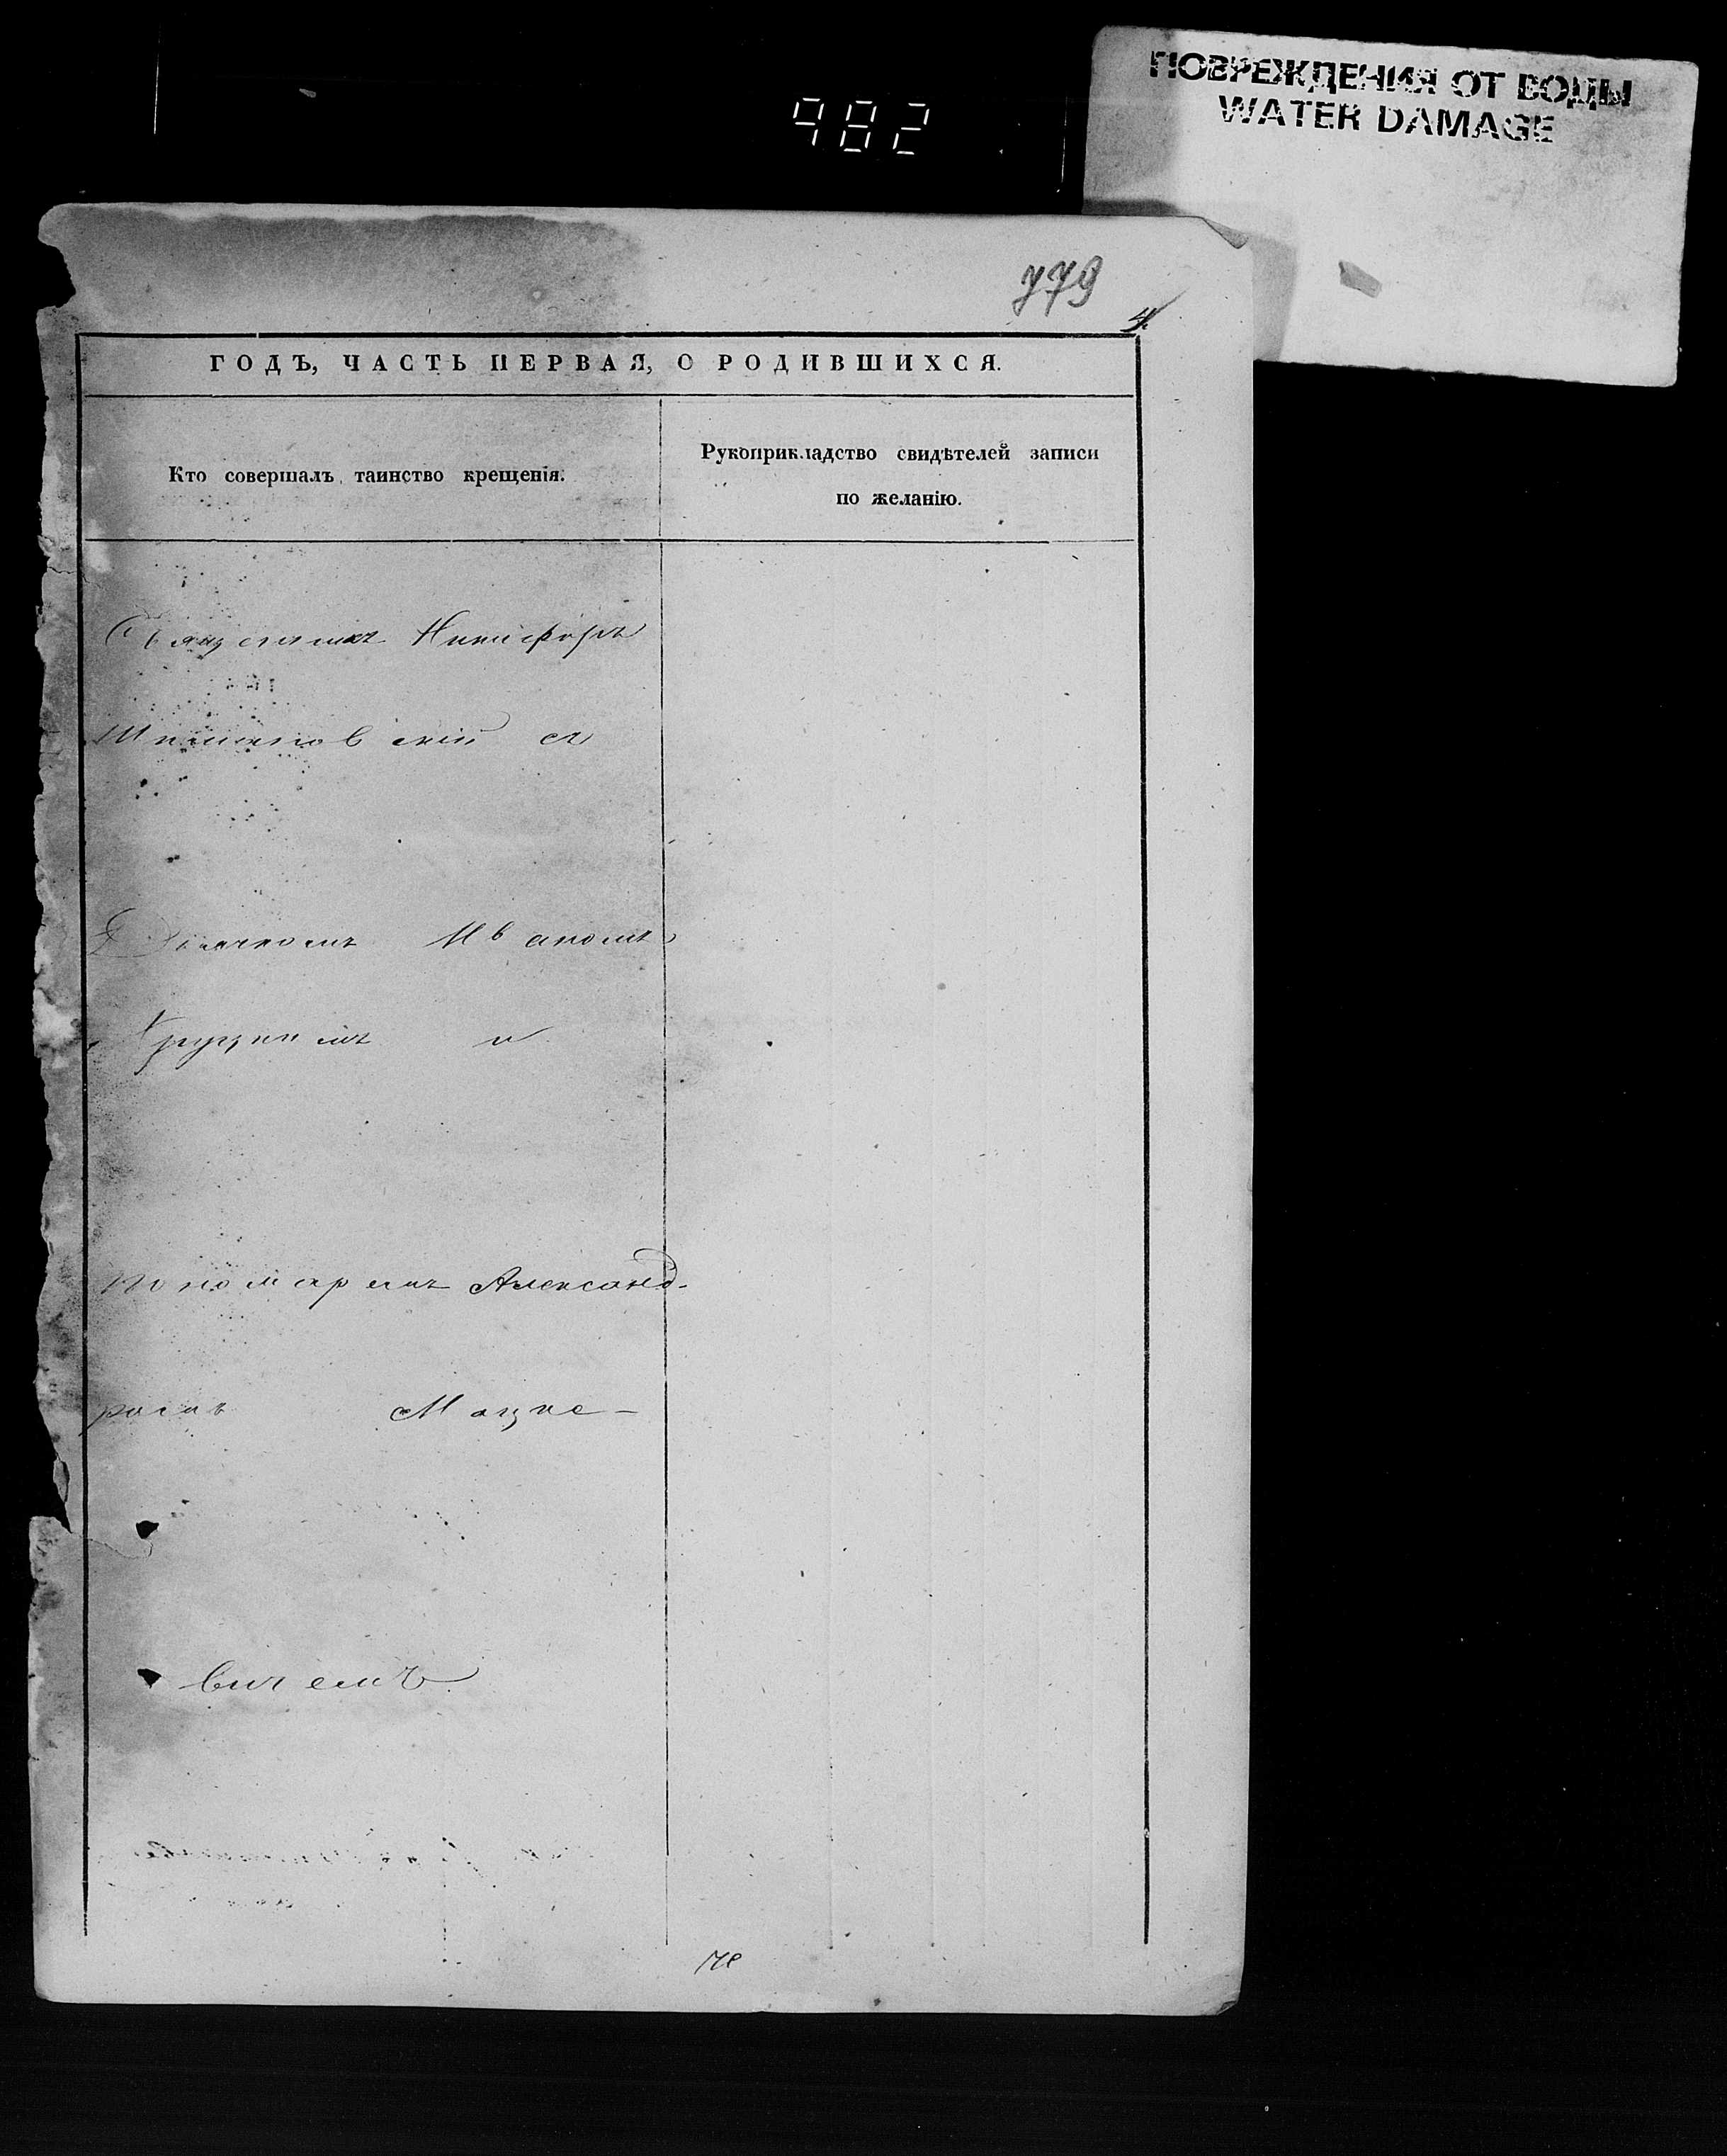 ПОВРЕЖДЕНИЯ ОТ ВОДЫ
WATER DAMAGE
982
779
4.
ГОДЪ, ЧАСТЬ ПЕРВАЯ, О РОДИВШИХСЯ.
Кто совершалъ таинство крещенія.
Рукоприкладство свидѣтелей записи
по желанію.
Священникъ Никифоръ
Шимановскій съ
Дьячкомъ Иваномъ
и
пономаремъ Александ-
ромъ Мацке-
вичемъ